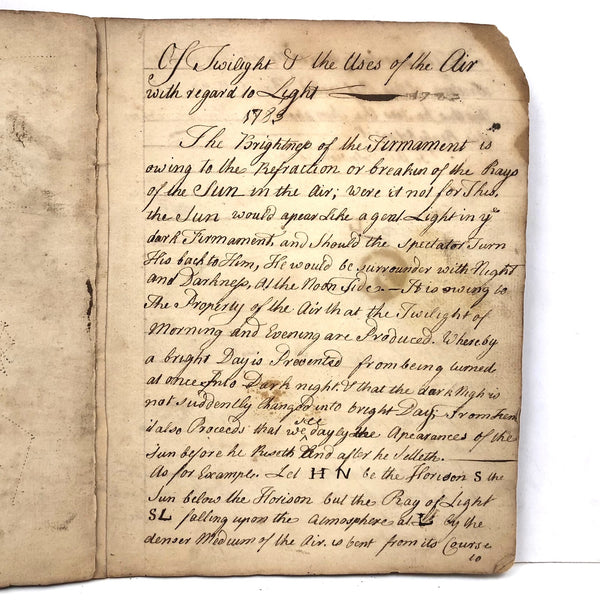 Of Twilight & the Uses of the Air
with regard to Light 1783
1783
The Brightness of the Firmament is
owing to the Refraction or breakin of the Rays
of the Sun in the Air; were it not for This,
the Sun would apear Like a great Light in ye
dark Firmament, and Should the Spectator Turn
His back to Him, He would be surrounder with Night
and Darkness, at the Noon Side — It is owing to
The Property of the Air th at the Twilight of
Morning and Evening are Produced. Whereby
a bright Day is Prevented from being turned
at once Into Dark night & that the dark Nigh is
not suddenly changed into bright Day; From hence
it also Proceeds that we see dayly the Apearances of the
Sun before he Riseth and after he Setteth.
As for Example. Let H N be the Horison S the
Sun below the Horison but the Ray of Light
SL falling upon the Atmosphere at L by the
denser Medium of the Air. is bent from its Course
to